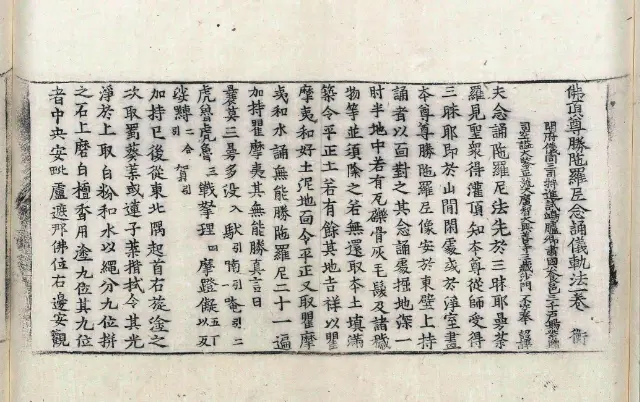 佛頂尊勝陁羅尼念誦儀軌法卷 衡
開府儀同三司特進試鴻臚卿肅國公食邑三千戶賜紫贈
司空謚大鑒正號大廣智大興善寺三藏沙門不空奉 詔譯
夫念誦陁羅尼法先於三昧耶曼荼
羅見聖衆得灌頂知本尊從師受得
三昧耶即於山間閑處或於淨室畫
本尊尊勝陁羅尼像安於東壁上持
誦者以面對之其念誦處掘地深一
肘半地中若有瓦礫骨灰毛髮及諸穢
物等並須除之若無還取本土填滿
築令平正土若有餘其地吉祥以瞿
摩夷和好土泥地面令平正又取瞿摩
夷和水誦無能勝陁羅尼二十一遍
加持瞿摩夷其無能勝真言曰
曩莫三曼多没馱引喃引唵引二
虎嚕虎嚕三戰拏理四摩蹬儗五丁以反
娑嚩二合引賀引
加持已後從東北隅起首右旋塗之
次取蜀葵葉或蓮子葉揩拭令其光
淨於上取白粉和水以繩分九位絣
之石上磨白檀香用塗九位其九位
者中央安毗盧遮那佛位右邊安觀